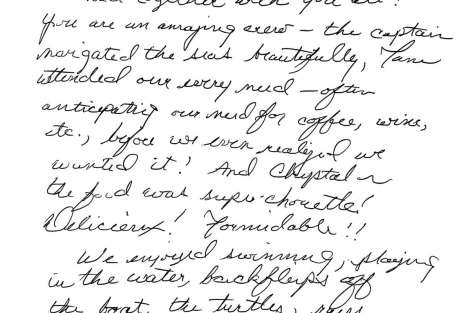 together with you all!
You are an amazing crew – the captain
navigated the seas beautifully,
attended our every need – often
anticipating our need for coffee, wine,
etc., before we even realized we
wanted it! And Chrystal ~
the food was super-chouette!
Delicieux! Formidable!!
We enjoyed swimming, playing
in the water, backflips off
the boat, the turtles,